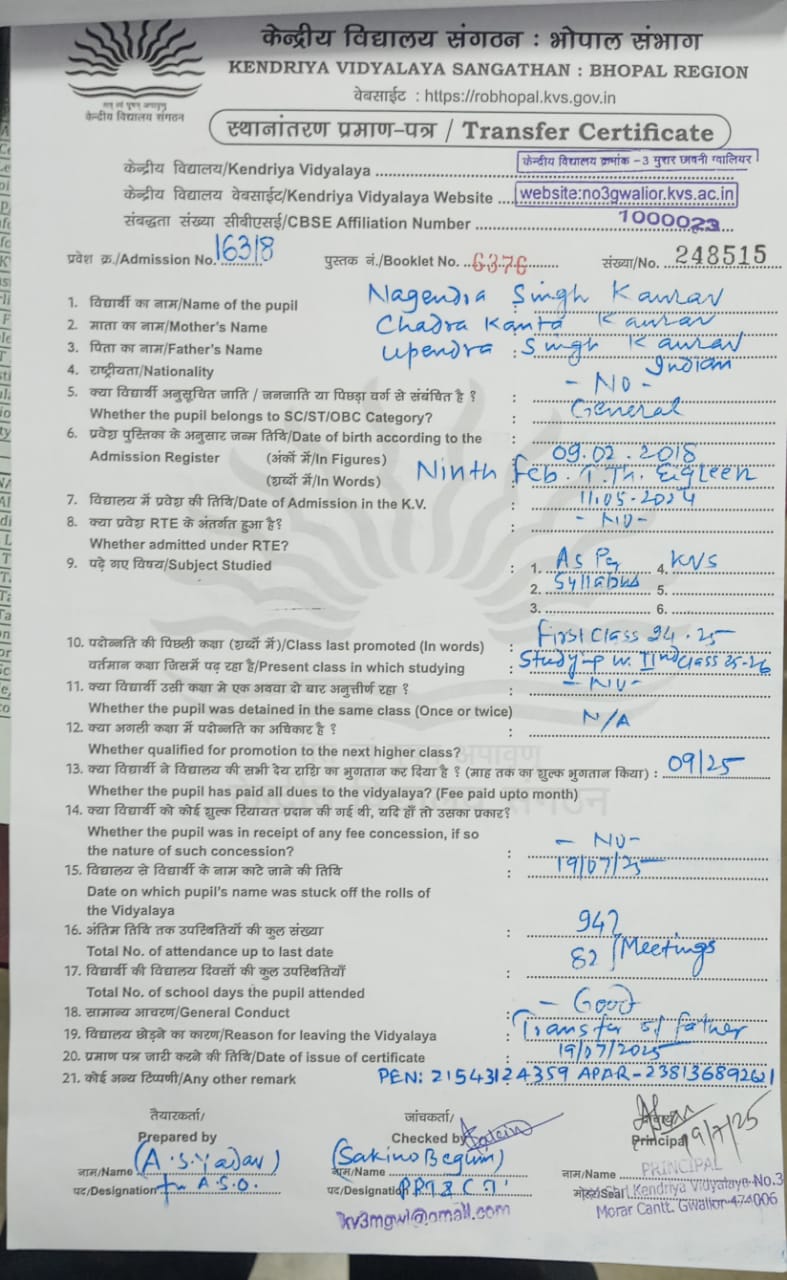 केन्द्रीय विद्यालय संगठन : भोपाल संभाग
KENDRIYA VIDYALAYA SANGATHAN : BHOPAL REGION
वेबसाईट : https://robhopal.kvs.gov.in
केन्द्रीय विद्यालय संगठन
स्थानांतरण प्रमाण-पत्र / Transfer Certificate
केन्द्रीय विद्यालय/Kendriya Vidyalaya केन्द्रीय विद्यालय क्रमांक -3 मुरार छावनी ग्वालियर
केन्द्रीय विद्यालय वेबसाईट/Kendriya Vidyalaya Website website:no3gwalior.kvs.ac.in
संबद्धता संख्या सीबीएसई/CBSE Affiliation Number 1000023
प्रवेश क्र./Admission No. 16318 पुस्तक नं./Booklet No. 6376 संख्या/No. 248515
1. विद्यार्थी का नाम/Name of the pupil Nagendra Singh Kaurav
2. माता का नाम/Mother's Name Chadra Kanta Kaurav
3. पिता का नाम/Father's Name : Upendra Singh Kaurav
4. राष्ट्रीयता/Nationality Indian
5. क्या विद्यार्थी अनुसूचित जाति / जनजाति या पिछड़ा वर्ग से संबंधित है ? : - No -
Whether the pupil belongs to SC/ST/OBC Category? : General
6. प्रवेश पुस्तिका के अनुसार जन्म तिथि/Date of birth according to the :
Admission Register (अंकों में/In Figures) 09.02.2018
(शब्दों में/In Words) Ninth Feb. T. Th. Eigteen
7. विद्यालय में प्रवेश की तिथि/Date of Admission in the K.V. : 11.05.2024
8. क्या प्रवेश RTE के अंतर्गत हुआ है? : - No -
Whether admitted under RTE?
9. पढ़े गए विषय/Subject Studied : 1. As Per 4. KVS
2. Syllabus 5.
3. 6.
10. पदोन्नति की पिछली कक्षा (शब्दों में)/Class last promoted (In words) : First Class 24-25
वर्तमान कक्षा जिसमें पढ़ रहा है/Present class in which studying : Study w. IInd class 25-26
11. क्या विद्यार्थी उसी कक्षा मे एक अथवा दो बार अनुत्तीर्ण रहा ? : - No -
Whether the pupil was detained in the same class (Once or twice)
12. क्या अगली कक्षा में पदोन्नति का अधिकार है ? : N/A
Whether qualified for promotion to the next higher class?
13. क्या विद्यार्थी ने विद्यालय की सभी देय राशि का भुगतान कर दिया है ? (माह तक का शुल्क भुगतान किया) : 09/25
Whether the pupil has paid all dues to the vidyalaya? (Fee paid upto month)
14. क्या विद्यार्थी को कोई शुल्क रियायत प्रदान की गई थी, यदि हाँ तो उसका प्रकार?
Whether the pupil was in receipt of any fee concession, if so
the nature of such concession? : - No -
15. विद्यालय से विद्यार्थी के नाम काटे जाने की तिथि : 19/07/25
Date on which pupil's name was stuck off the rolls of
the Vidyalaya
16. अंतिम तिथि तक उपस्थितियों की कुल संख्या : 942
Total No. of attendance up to last date
17. विद्यार्थी की विद्यालय दिवसों की कुल उपस्थितियाँ : 82 Meetings
Total No. of school days the pupil attended
18. सामान्य आचरण/General Conduct : - Good
19. विद्यालय छोड़ने का कारण/Reason for leaving the Vidyalaya : Transfer of father
20. प्रमाण पत्र जारी करने की तिथि/Date of issue of certificate : 19/07/2025
21. कोई अन्य टिप्पणी/Any other remark PEN: 21543124359 APAR-238136892621
तैयारकर्ता/ जांचकर्ता/
Prepared by Checked by Principal 19/7/25
नाम/Name (A.S. Yadav) नाम/Name (Sakino Begum) नाम/Name PRINCIPAL
पद/Designation A.S.O. पद/Designation Seal Kendriya Vidyalaya No.3
kv3mgwl@gmail.com Morar Cantt. Gwalior-474006